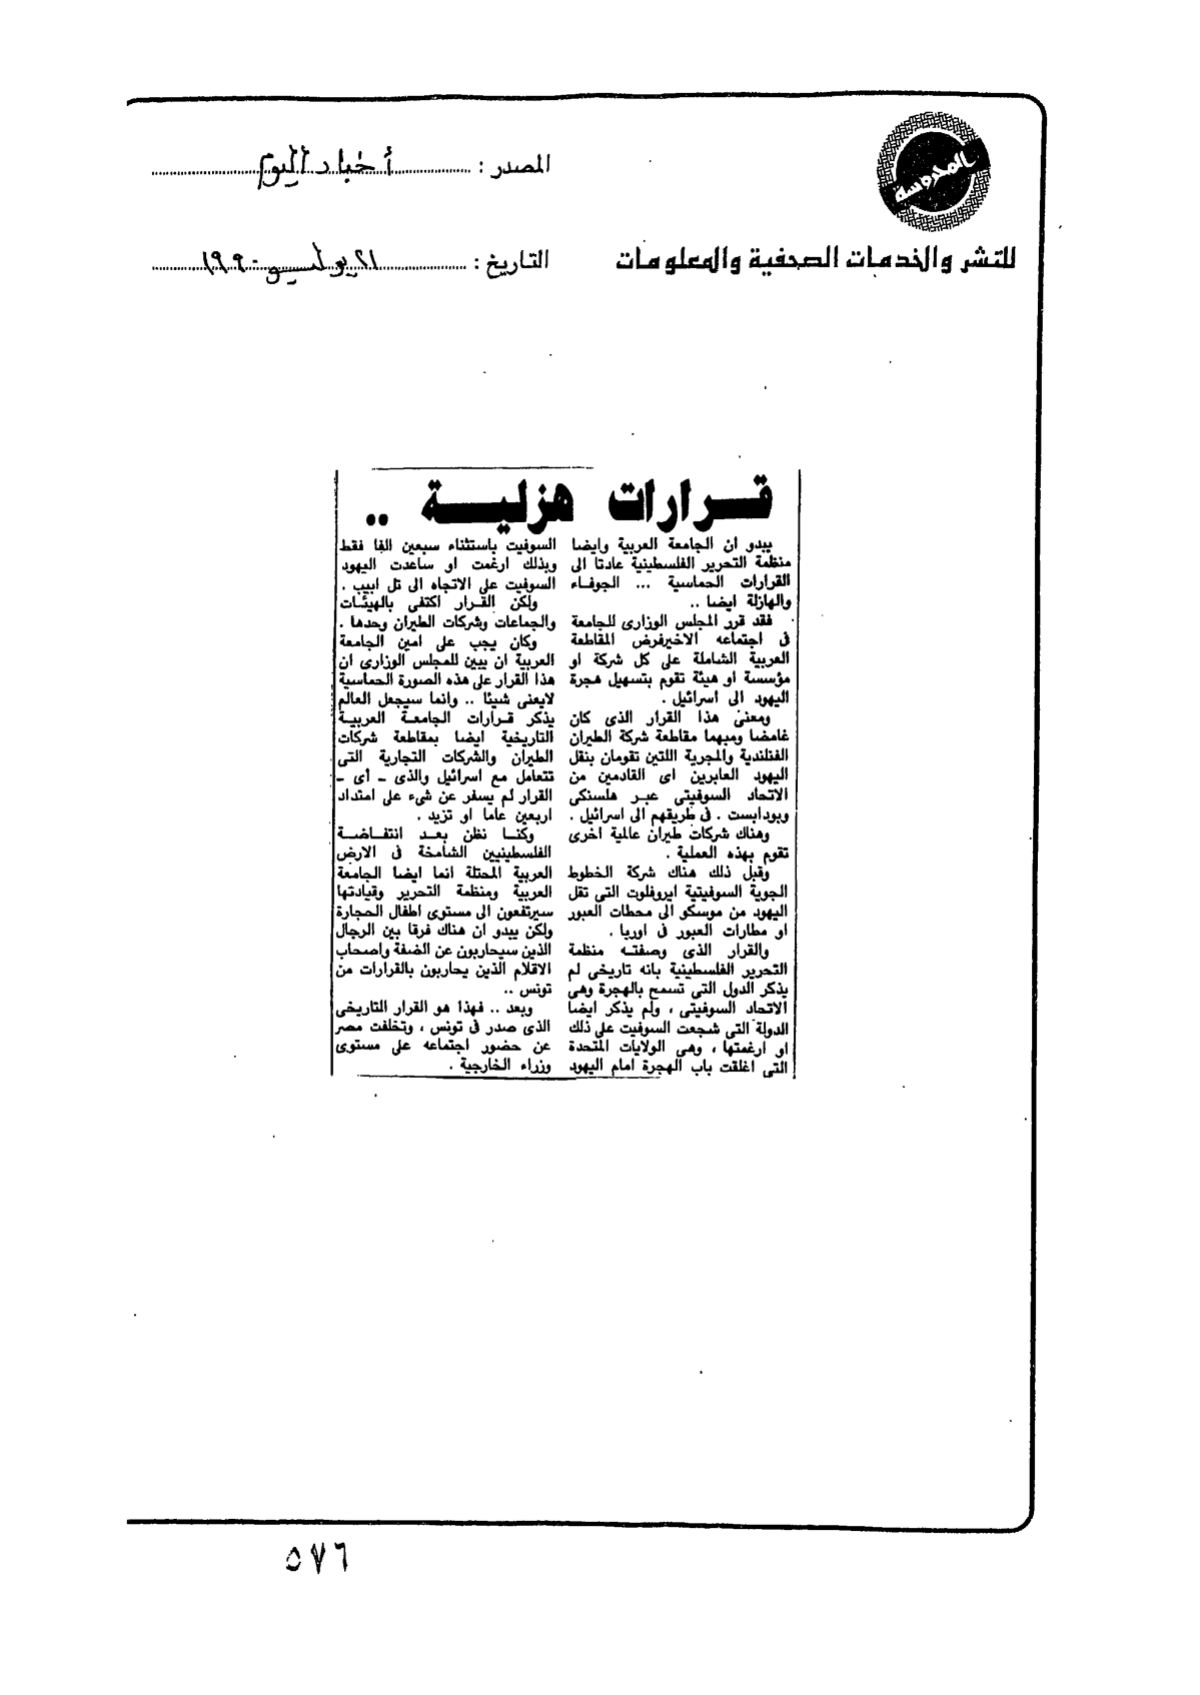 المحروسة
للنشر والخدمات الصحفية والمعلومات
المصدر : أخبار اليوم
التاريخ : ٢١ يوليو ١٩٩٠
قرارات هزلية ..
يبدو ان الجامعة العربية وايضا
منظمة التحرير الفلسطينية عادتا الى
القرارات الحماسية ... الجوفاء
والهازلة ايضا ..
فقد قرر المجلس الوزارى للجامعة
فى اجتماعه الاخيرفرض المقاطعة
العربية الشاملة على كل شركة او
مؤسسة او هيئة تقوم بتسهيل هجرة
اليهود الى اسرائيل .
ومعنى هذا القرار الذى كان
غامضا ومبهما مقاطعة شركة الطيران
الفنلندية والمجرية اللتين تقومان بنقل
اليهود العابرين اى القادمين من
الاتحاد السوفيتى عبر هلسنكى
وبودابست . فى طريقهم الى اسرائيل .
وهناك شركات طيران عالمية اخرى
تقوم بهذه العملية .
وقبل ذلك هناك شركة الخطوط
الجوية السوفيتية ايروفلوت التى تقل
اليهود من موسكو الى محطات العبور
او مطارات العبور فى اوربا .
والقرار الذى وصفته منظمة
التحرير الفلسطينية بانه تاريخى لم
يذكر الدول التى تسمح بالهجرة وهى
الاتحاد السوفيتى ، ولم يذكر ايضا
الدولة التى شجعت السوفيت على ذلك
او ارغمتها ، وهى الولايات المتحدة
التى اغلقت باب الهجرة امام اليهود
السوفيت باستثناء سبعين الفا فقط
وبذلك ارغمت او ساعدت اليهود
السوفيت على الاتجاه الى تل ابيب .
ولكن القرار اكتفى بالهيئات
والجماعات وشركات الطيران وحدها .
وكان يجب على امين الجامعة
العربية ان يبين للمجلس الوزارى ان
هذا القرار على هذه الصورة الحماسية
لايعنى شيئا .. وانما سيجعل العالم
يذكر قرارات الجامعة العربية
التاريخية ايضا بمقاطعة شركات
الطيران والشركات التجارية التى
تتعامل مع اسرائيل والذى - أى -
القرار لم يسفر عن شىء على امتداد
اربعين عاما او تزيد .
وكنا نظن بعد انتفاضة
الفلسطينيين الشامخة فى الارض
العربية المحتلة انما ايضا الجامعة
العربية ومنظمة التحرير وقيادتها
سيرتفعون الى مستوى اطفال الحجارة
ولكن يبدو ان هناك فرقا بين الرجال
الذين سيحاربون عن الضفة واصحاب
الاقلام الذين يحاربون بالقرارات من
تونس ..
وبعد .. فهذا هو القرار التاريخى
الذى صدر فى تونس ، وتخلفت مصر
عن حضور اجتماعه على مستوى
وزراء الخارجية .
٥٧٦